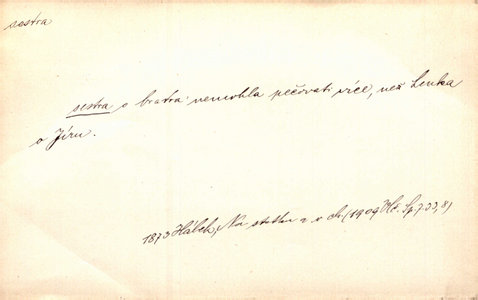 sestra
sestra o bratra nemohla pečovati více, než Lenka
o Jíru.
1873 Hálek, Na statku a v ch. (1909 Vl. Sp. 7.33,8)